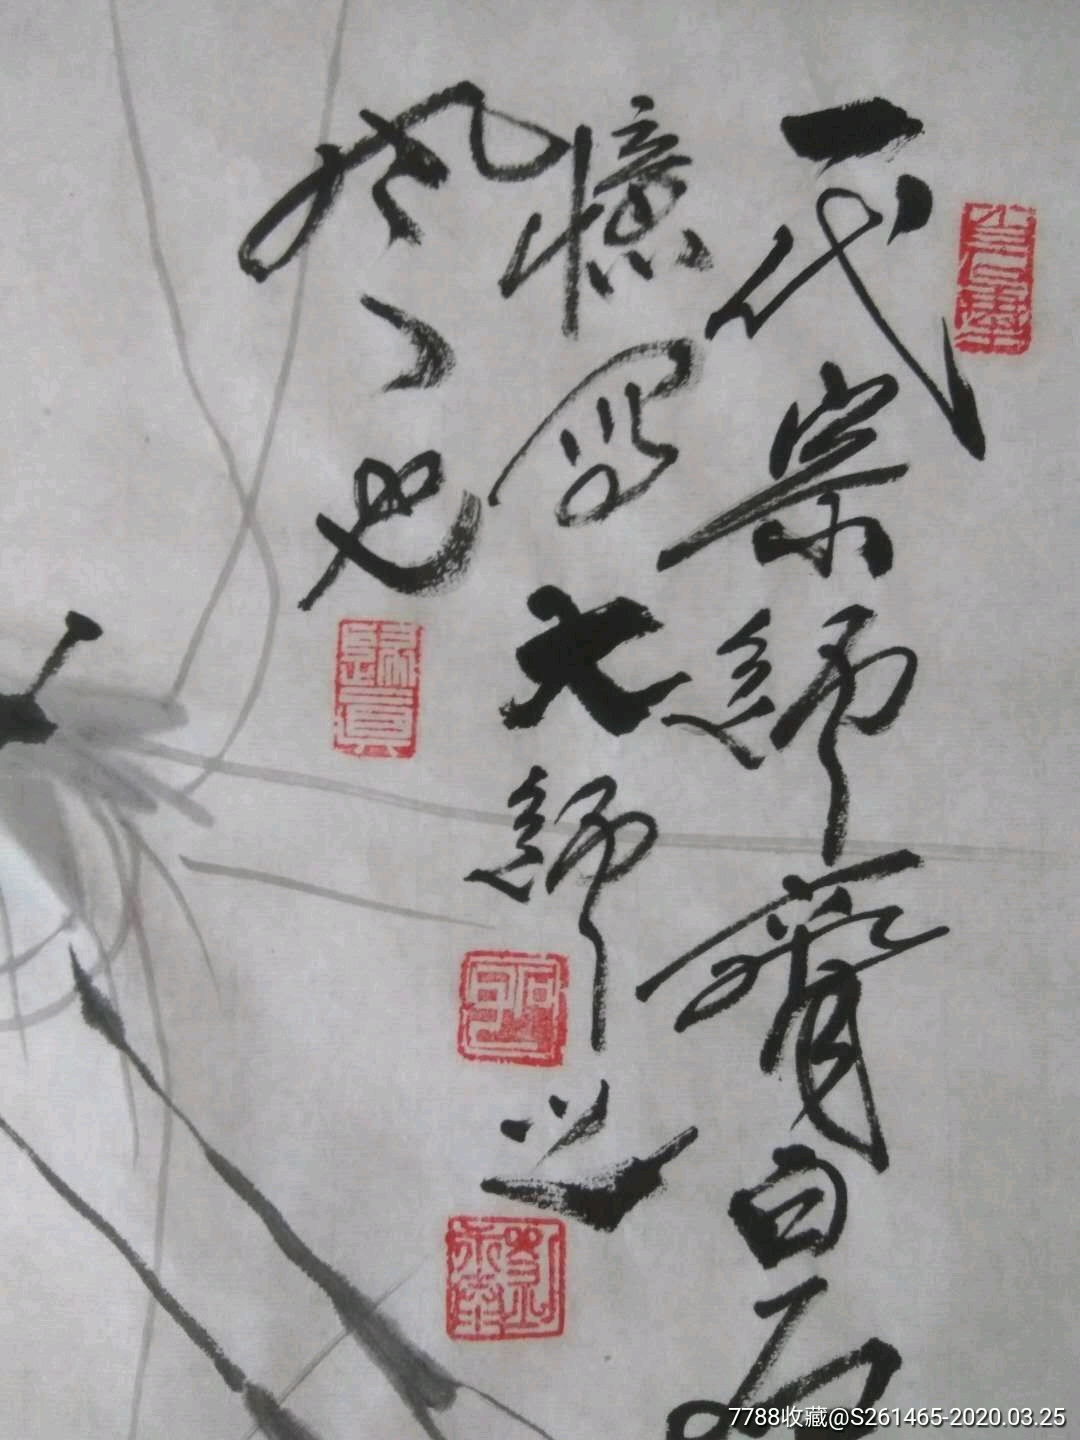 一代宗師齊白石
憶寫大師之
风、也
歸真
7788收藏@S261465-2020.03.25